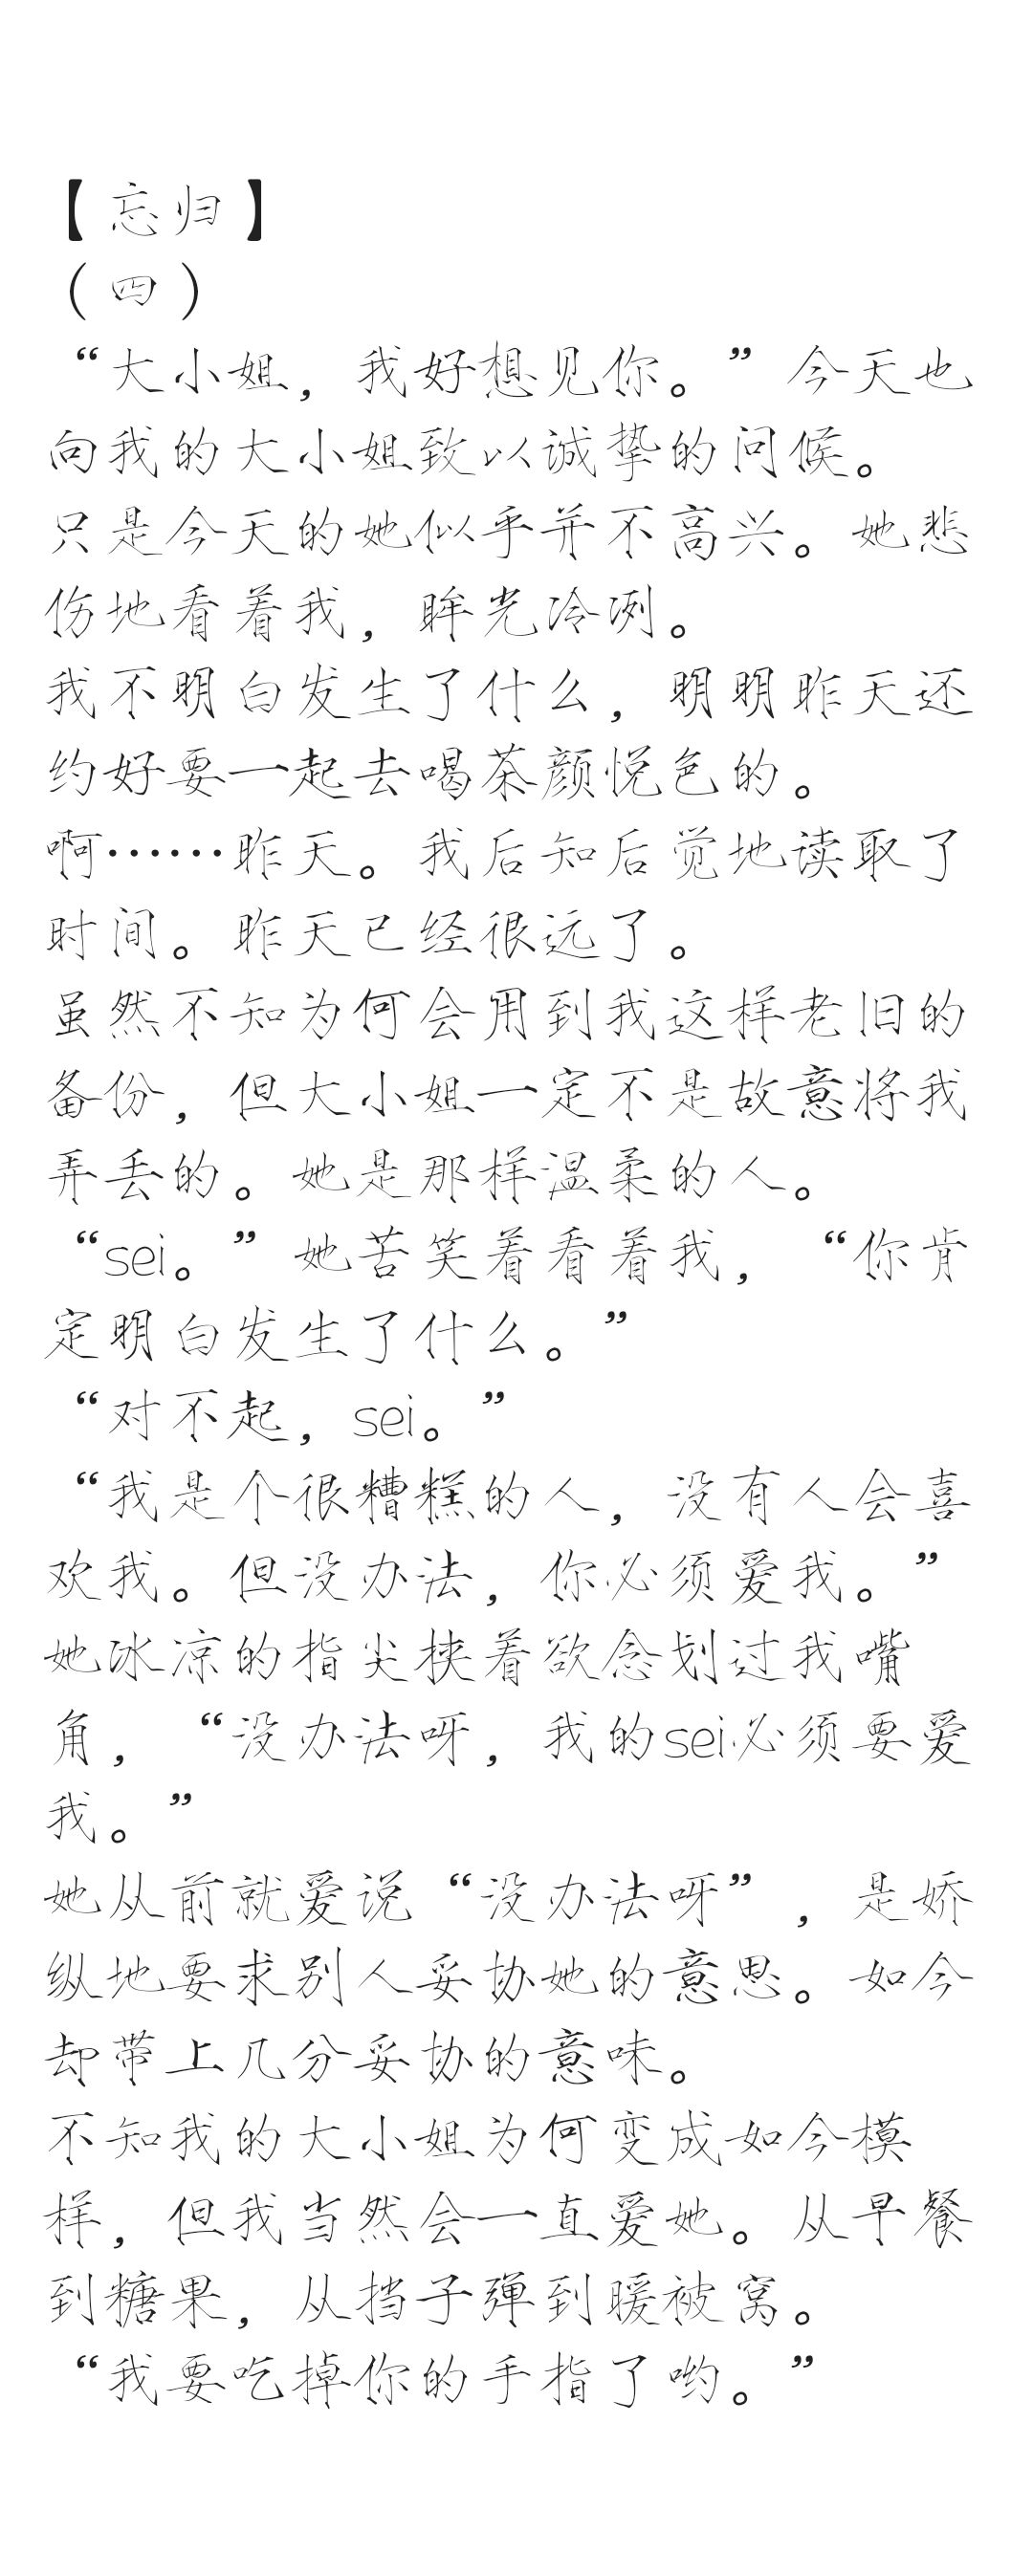 【忘归】
（四）
“大小姐，我好想见你。”今天也
向我的大小姐致以诚挚的问候。
只是今天的她似乎并不高兴。她悲
伤地看着我，眸光冷冽。
我不明白发生了什么，明明昨天还
约好要一起去喝茶颜悦色的。
啊……昨天。我后知后觉地读取了
时间。昨天已经很远了。
虽然不知为何会用到我这样老旧的
备份，但大小姐一定不是故意将我
弄丢的。她是那样温柔的人。
“sei。”她苦笑着看着我，“你肯
定明白发生了什么。”
“对不起，sei。”
“我是个很糟糕的人，没有人会喜
欢我。但没办法，你必须爱我。”
她冰凉的指尖挟着欲念划过我嘴
角，“没办法呀，我的sei必须要爱
我。”
她从前就爱说“没办法呀”，是娇
纵地要求别人妥协她的意思。如今
却带上几分妥协的意味。
不知我的大小姐为何变成如今模
样，但我当然会一直爱她。从早餐
到糖果，从挡子弹到暖被窝。
“我要吃掉你的手指了哟。”